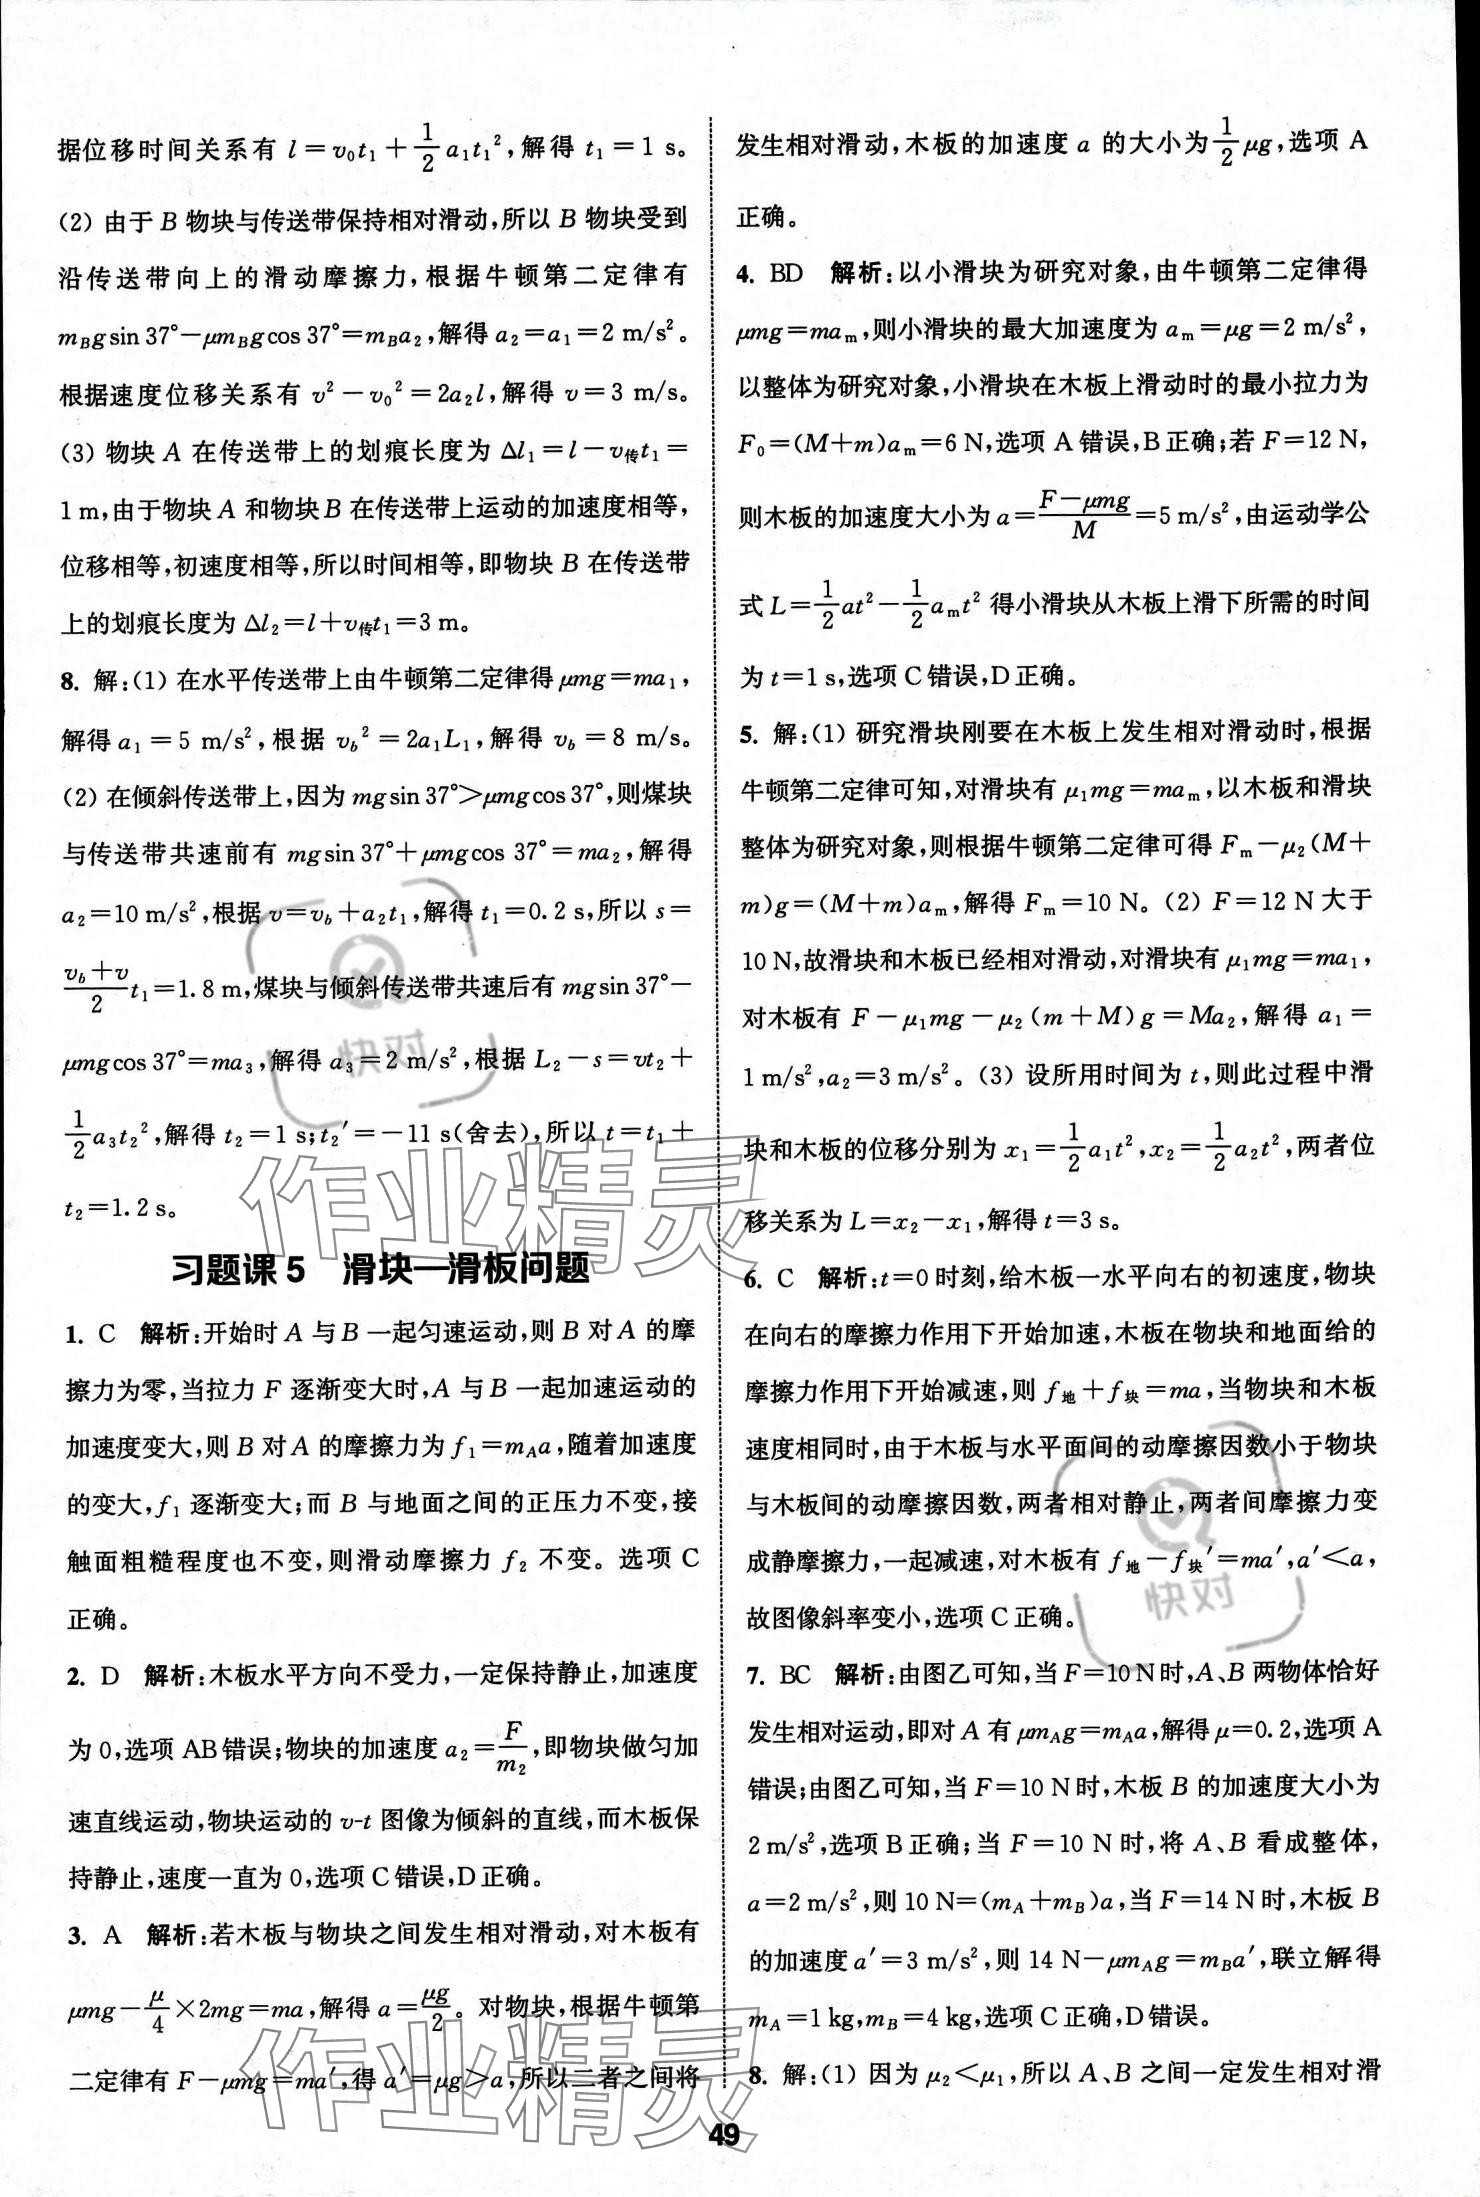 据位移时间关系有 l=v₀t₁+\frac{1}{2}a₁t₁²,解得 t₁=1 s。
(2) 由于 B 物块与传送带保持相对滑动,所以 B 物块受到
沿传送带向上的滑动摩擦力,根据牛顿第二定律有
m_Bgsin 37°-μm_Bgcos 37°=m_Ba₂,解得 a₂=a₁=2 m/s²。
根据速度位移关系有 v²-v₀²=2a₂l,解得 v=3 m/s。
(3) 物块 A 在传送带上的划痕长度为 Δl₁=l-v_传t₁=
1 m,由于物块 A 和物块 B 在传送带上运动的加速度相等,
位移相等,初速度相等,所以时间相等,即物块 B 在传送带
上的划痕长度为 Δl₂=l+v_传t₁=3 m。
8. 解:(1) 在水平传送带上由牛顿第二定律得 μmg=ma₁,
解得 a₁=5 m/s²,根据 v_b²=2a₁L₁,解得 v_b=8 m/s。
(2) 在倾斜传送带上,因为 mgsin 37°>μmgcos 37°,则煤块
与传送带共速前有 mgsin 37°+μmgcos 37°=ma₂,解得
a₂=10 m/s²,根据 v=v_b+a₂t₁,解得 t₁=0.2 s,所以 s=
\frac{v_b+v}{2}t₁=1.8 m,煤块与倾斜传送带共速后有 mgsin 37°-
μmgcos 37°=ma₃,解得 a₃=2 m/s²,根据 L₂-s=vt₂+
\frac{1}{2}a₃t₂²,解得 t₂=1 s;t₂′=-11 s(舍去),所以 t=t₁+
t₂=1.2 s。
习题课 5 滑块—滑板问题
1. C 解析:开始时 A 与 B 一起匀速运动,则 B 对 A 的摩
擦力为零,当拉力 F 逐渐变大时,A 与 B 一起加速运动的
加速度变大,则 B 对 A 的摩擦力为 f₁=m_Aa,随着加速度
的变大,f₁ 逐渐变大;而 B 与地面之间的正压力不变,接
触面粗糙程度也不变,则滑动摩擦力 f₂ 不变。选项 C
正确。
2. D 解析:木板水平方向不受力,一定保持静止,加速度
为 0,选项 AB 错误;物块的加速度 a₂=\frac{F}{m₂},即物块做匀加
速直线运动,物块运动的 v-t 图像为倾斜的直线,而木板保
持静止,速度一直为 0,选项 C 错误,D 正确。
3. A 解析:若木板与物块之间发生相对滑动,对木板有
μmg-\frac{μ}{4}×2mg=ma,解得 a=\frac{μg}{2}。对物块,根据牛顿第
二定律有 F-μmg=ma′,得 a′=μg>a,所以二者之间将
发生相对滑动,木板的加速度 a 的大小为\frac{1}{2}μg,选项 A
正确。
4. BD 解析:以小滑块为研究对象,由牛顿第二定律得
μmg=ma_m,则小滑块的最大加速度为 a_m=μg=2 m/s²,
以整体为研究对象,小滑块在木板上滑动时的最小拉力为
F₀=(M+m)a_m=6 N,选项 A 错误,B 正确;若 F=12 N,
则木板的加速度大小为 a=\frac{F-μmg}{M}=5 m/s²,由运动学公
式 L=\frac{1}{2}at²-\frac{1}{2}a_mt² 得小滑块从木板上滑下所需的时间
为 t=1 s,选项 C 错误,D 正确。
5. 解:(1) 研究滑块刚要在木板上发生相对滑动时,根据
牛顿第二定律可知,对滑块有 μ₁mg=ma_m,以木板和滑块
整体为研究对象,则根据牛顿第二定律可得 F_m-μ₂(M+
m)g=(M+m)a_m,解得 F_m=10 N。(2) F=12 N 大于
10 N,故滑块和木板已经相对滑动,对滑块有 μ₁mg=ma₁,
对木板有 F-μ₁mg-μ₂(m+M)g=Ma₂,解得 a₁=
1 m/s²,a₂=3 m/s²。(3) 设所用时间为 t,则此过程中滑
块和木板的位移分别为 x₁=\frac{1}{2}a₁t²,x₂=\frac{1}{2}a₂t²,两者位
移关系为 L=x₂-x₁,解得 t=3 s。
6. C 解析:t=0 时刻,给木板一水平向右的初速度,物块
在向右的摩擦力作用下开始加速,木板在物块和地面给的
摩擦力作用下开始减速,则 f_地+f_块=ma,当物块和木板
速度相同时,由于木板与水平面间的动摩擦因数小于物块
与木板间的动摩擦因数,两者相对静止,两者间摩擦力变
成静摩擦力,一起减速,对木板有 f_地-f_块′=ma′,a′<a,
故图像斜率变小,选项 C 正确。
7. BC 解析:由图乙可知,当 F=10 N 时,A、B 两物体恰好
发生相对运动,即对 A 有 μm_Ag=m_Aa,解得 μ=0.2,选项 A
错误;由图乙可知,当 F=10 N 时,木板 B 的加速度大小为
2 m/s²,选项 B 正确;当 F=10 N 时,将 A、B 看成整体,
a=2 m/s²,则 10 N=(m_A+m_B)a,当 F=14 N 时,木板 B
的加速度 a′=3 m/s²,则 14 N-μm_Ag=m_Ba′,联立解得
m_A=1 kg,m_B=4 kg,选项 C 正确,D 错误。
8. 解:(1) 因为 μ₂<μ₁,所以 A、B 之间一定发生相对滑
49
快对
作业精灵
快对
作业精灵